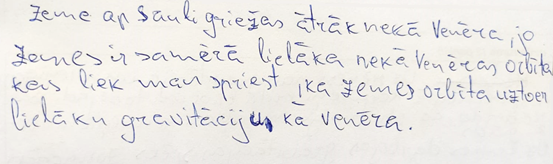 Zeme ap Sauli griežas ātrāk nekā Venēra, jo
Zemes ir samērā lielāka nekā Venēras orbīta
kas liek man spriest, ka Zemes orbīta uztver
lielāku gravitāciju, kā Venēra.